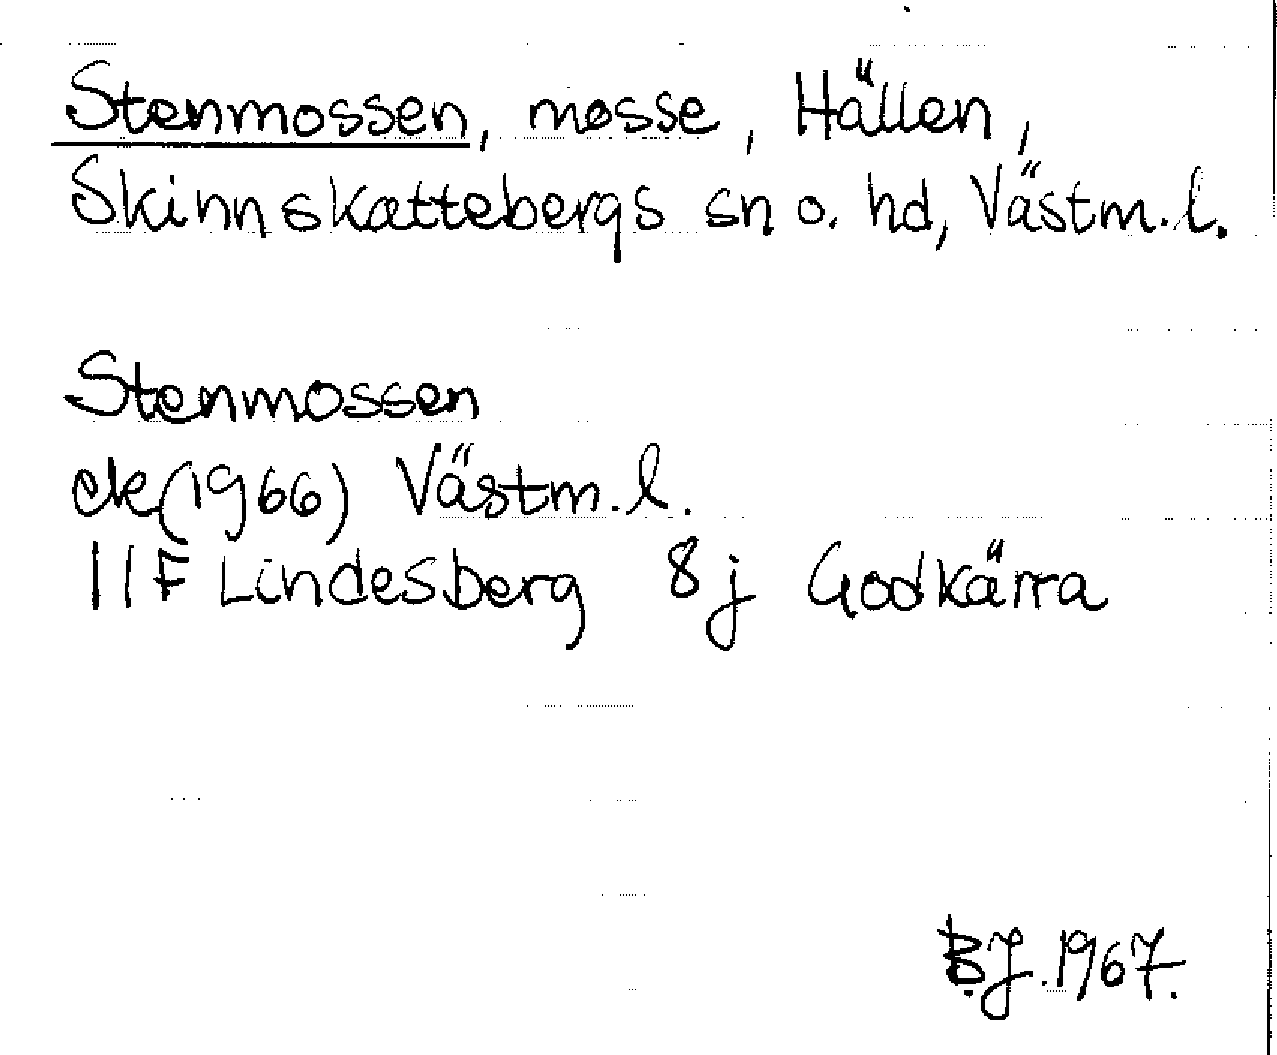 Stenmossen, mosse, Hällen,
Skinnskattebergs sn o. hd, Västm.l.
Stenmossen
ek(1966) Västm.l.
11F Lindesberg 8j Godkärra
B.J. 1967.